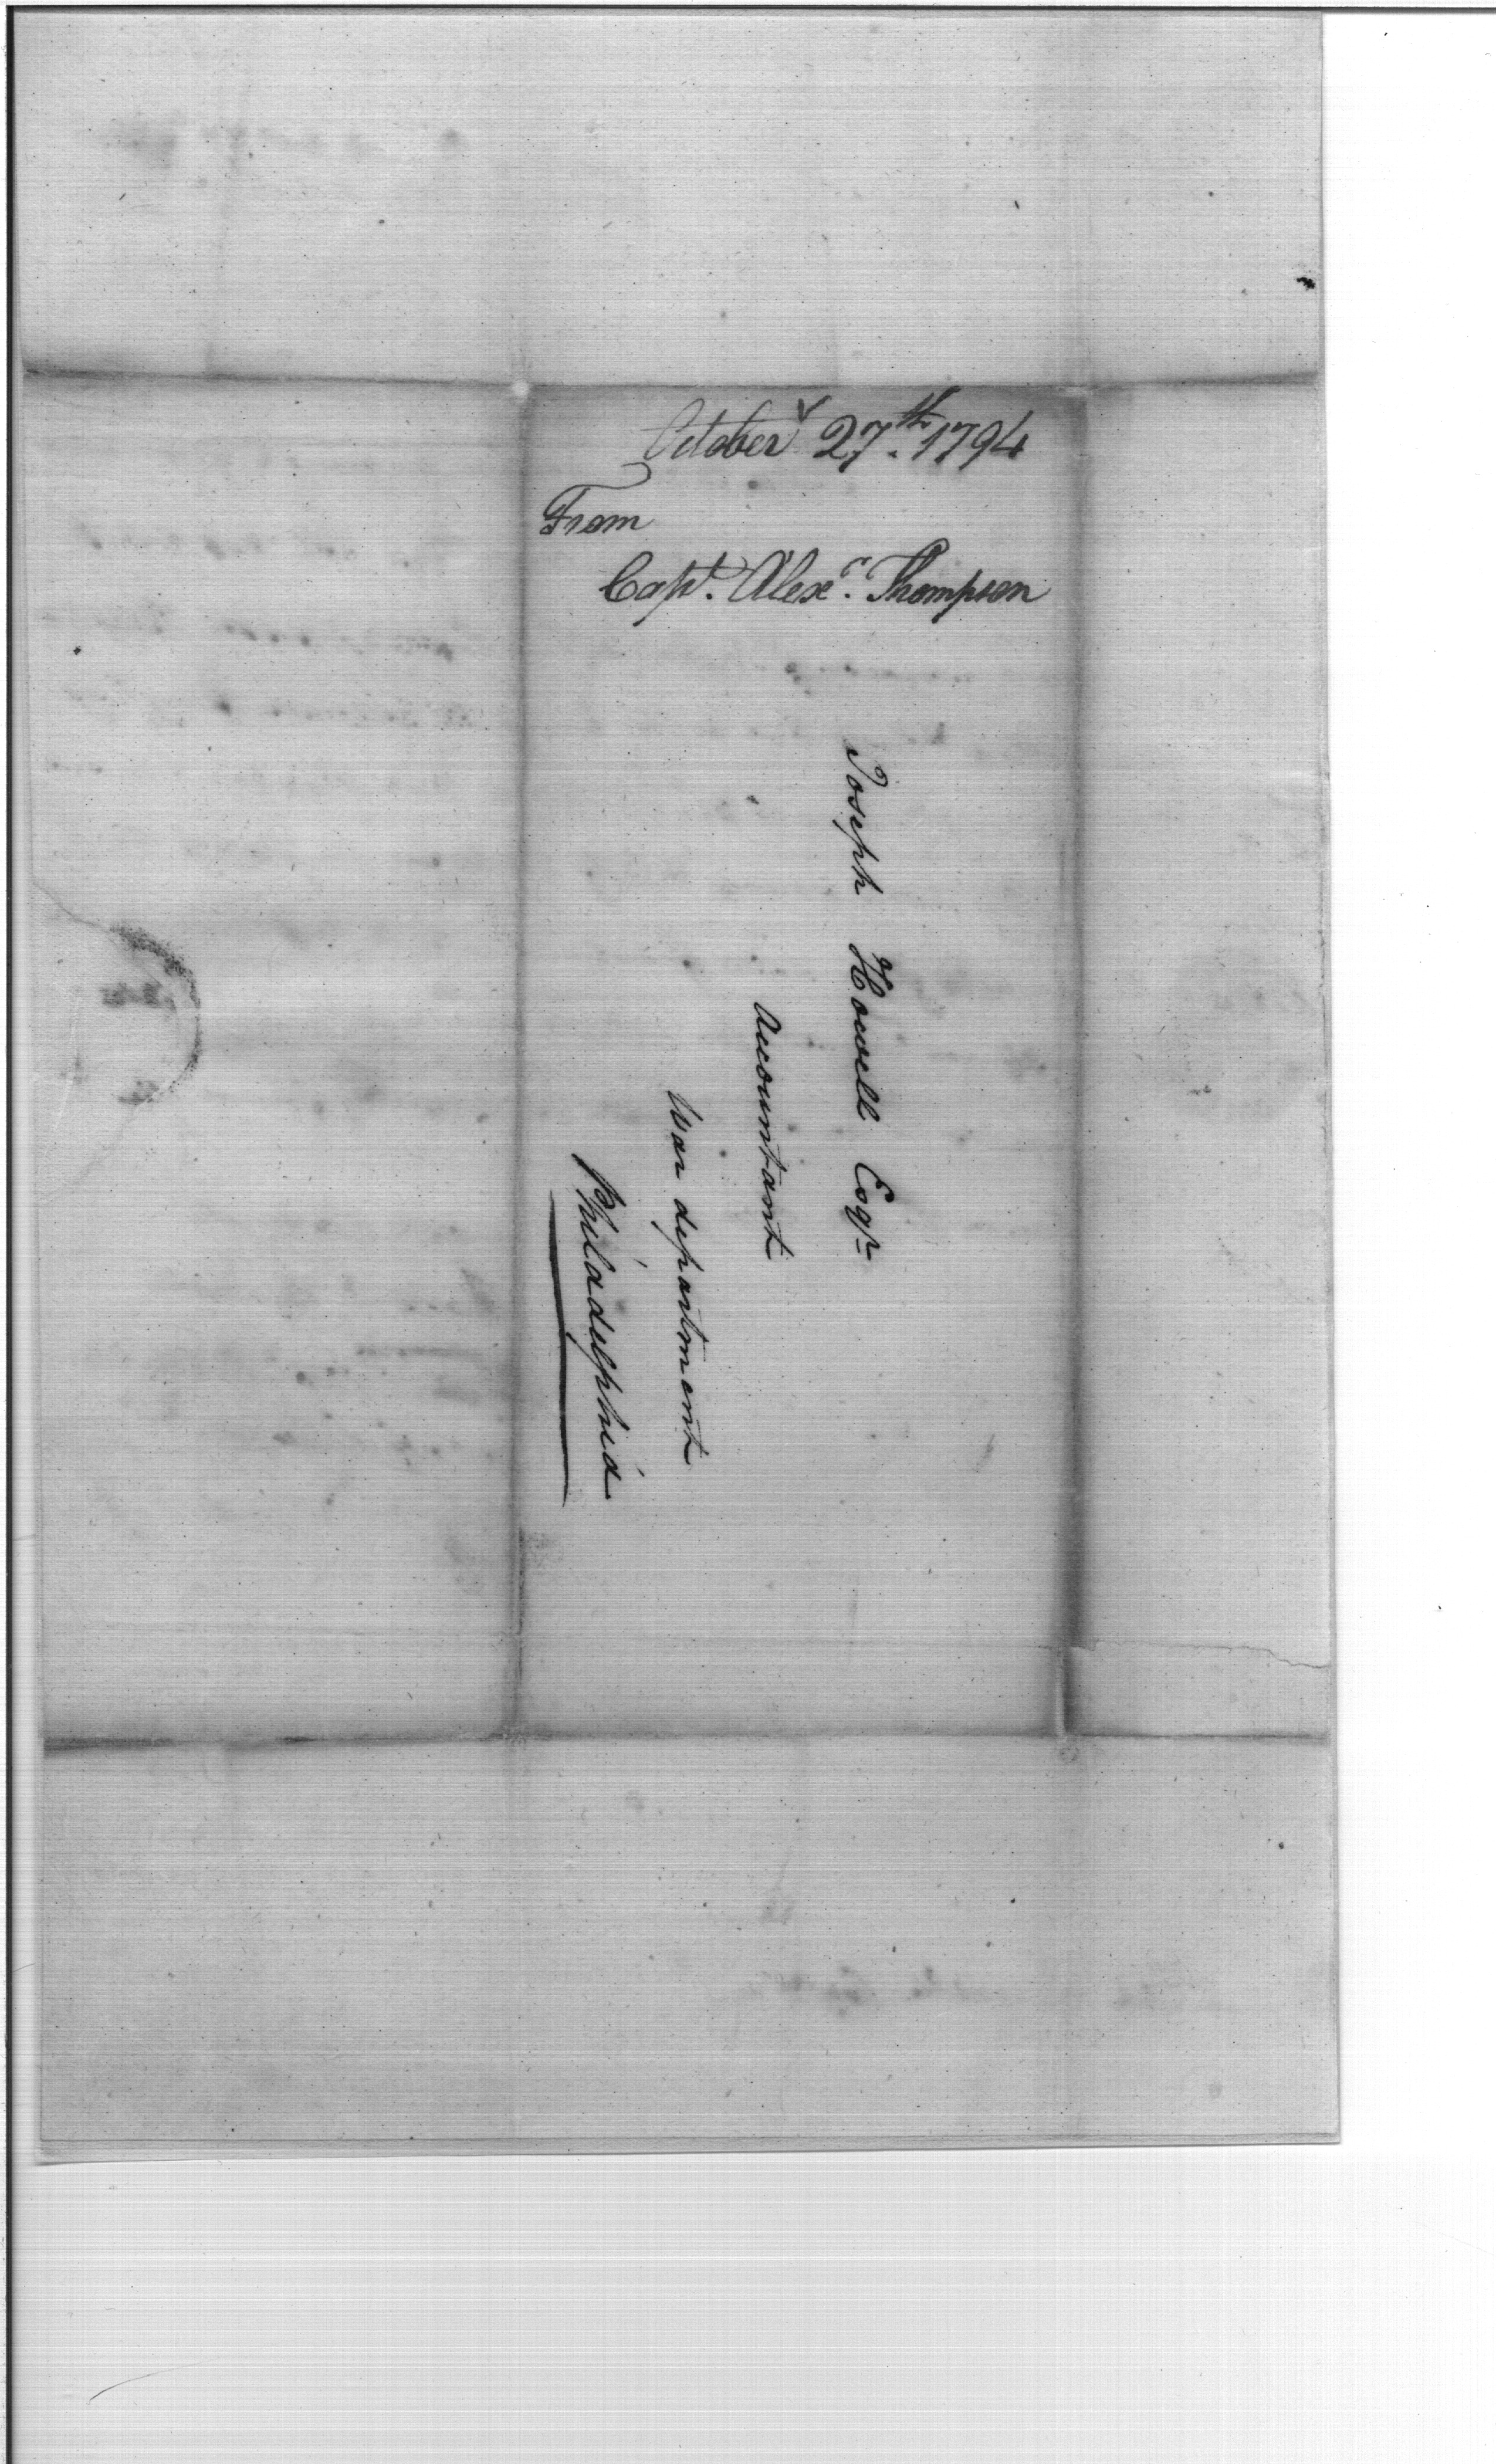 October 27th. 1794
From
Capt. Alexr. Thompson
Joseph Howell Esqr
Accountant
War department
Philadelphia